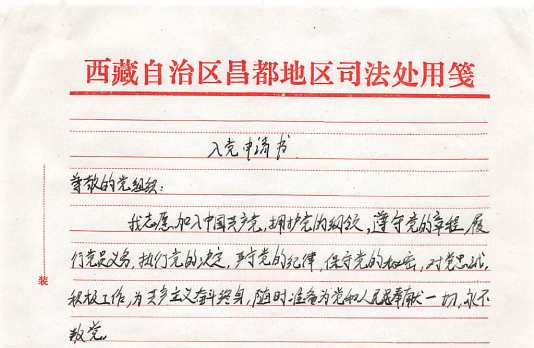 西藏自治区昌都地区司法处用笺
入党申请书
尊敬的党组织:
我志愿加入中国共产党,拥护党的纲领,遵守党的章程,履
行党员义务,执行党的决定,严守党的纪律,保守党的秘密,对党忠诚,
积极工作,为共产主义奋斗终身,随时准备为党和人民牺牲一切,永不
叛党。
装